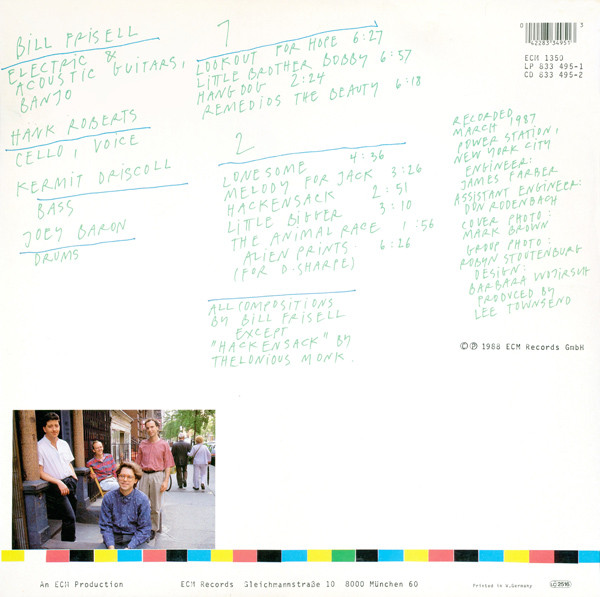 BILL FRISELL
ELECTRIC &
ACOUSTIC GUITARS,
BANJO
HANK ROBERTS
CELLO, VOICE
KERMIT DRISCOLL
BASS
JOEY BARON
DRUMS
1
LOOKOUT FOR HOPE 6:27
LITTLE BROTHER BOBBY 6:57
HANGDOG 2:24
REMEDIOS THE BEAUTY 6:18
2
LONESOME 4:36
MELODY FOR JACK 3:26
HACKENSACK 2:51
LITTLE BIGGER 3:10
THE ANIMAL RACE 1:56
ALIEN PRINTS. 6:26
(FOR D. SHARPE)
ALL COMPOSITIONS
BY BILL FRISELL
EXCEPT
"HACKENSACK" BY
THELONIOUS MONK.
0 42283 34951 3
ECM 1350
LP 833 495-1
CD 833 495-2
RECORDED
MARCH 1987
POWER STATION,
NEW YORK CITY
ENGINEER:
JAMES FARBER
ASSISTANT ENGINEER:
DON RODENBACH
COVER PHOTO:
MARK BROWN
GROUP PHOTO:
ROBYN STOUTENBURG
DESIGN:
BARBARA WOJIRSCH
PRODUCED BY
LEE TOWNSEND
© ℗ 1988 ECM Records GmbH
An ECM Production
ECM Records Gleichmannstraße 10 8000 München 60
Printed in W.Germany
LC 2516